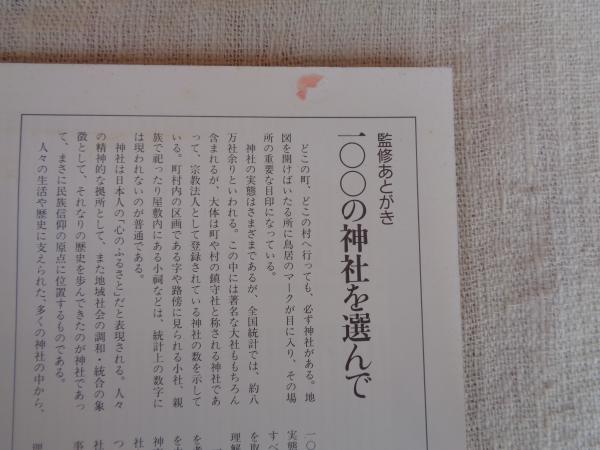 監修あとがき
一〇〇の神社を選んで
どこの町、どこの村へ行っても、必ず神社がある。地
図を開けばいたる所に鳥居のマークが目に入り、その場
所の重要な目印になっている。
神社の実態はさまざまであるが、全国統計では、約八
万社余りといわれる。この中には著名な大社ももちろん
含まれるが、大体は町や村の鎮守社と称される神社であ
って、宗教法人として登録されている神社の数を示して
いる。町村内の区画である字や路傍に見られる小社、親
族で祀ったり屋敷内にある小祠などは、統計上の数字に
は現われないのが普通である。
神社は日本人の「心のふるさと」だと表現される。人々
の精神的な拠所として、また地域社会の調和・統合の象
徴として、それなりの歴史を歩んできたのが神社であっ
て、まさに民族信仰の原点に位置するものである。
人々の生活や歴史に支えられた、多くの神社の中から、
一〇
実態
すべ
を取
理解